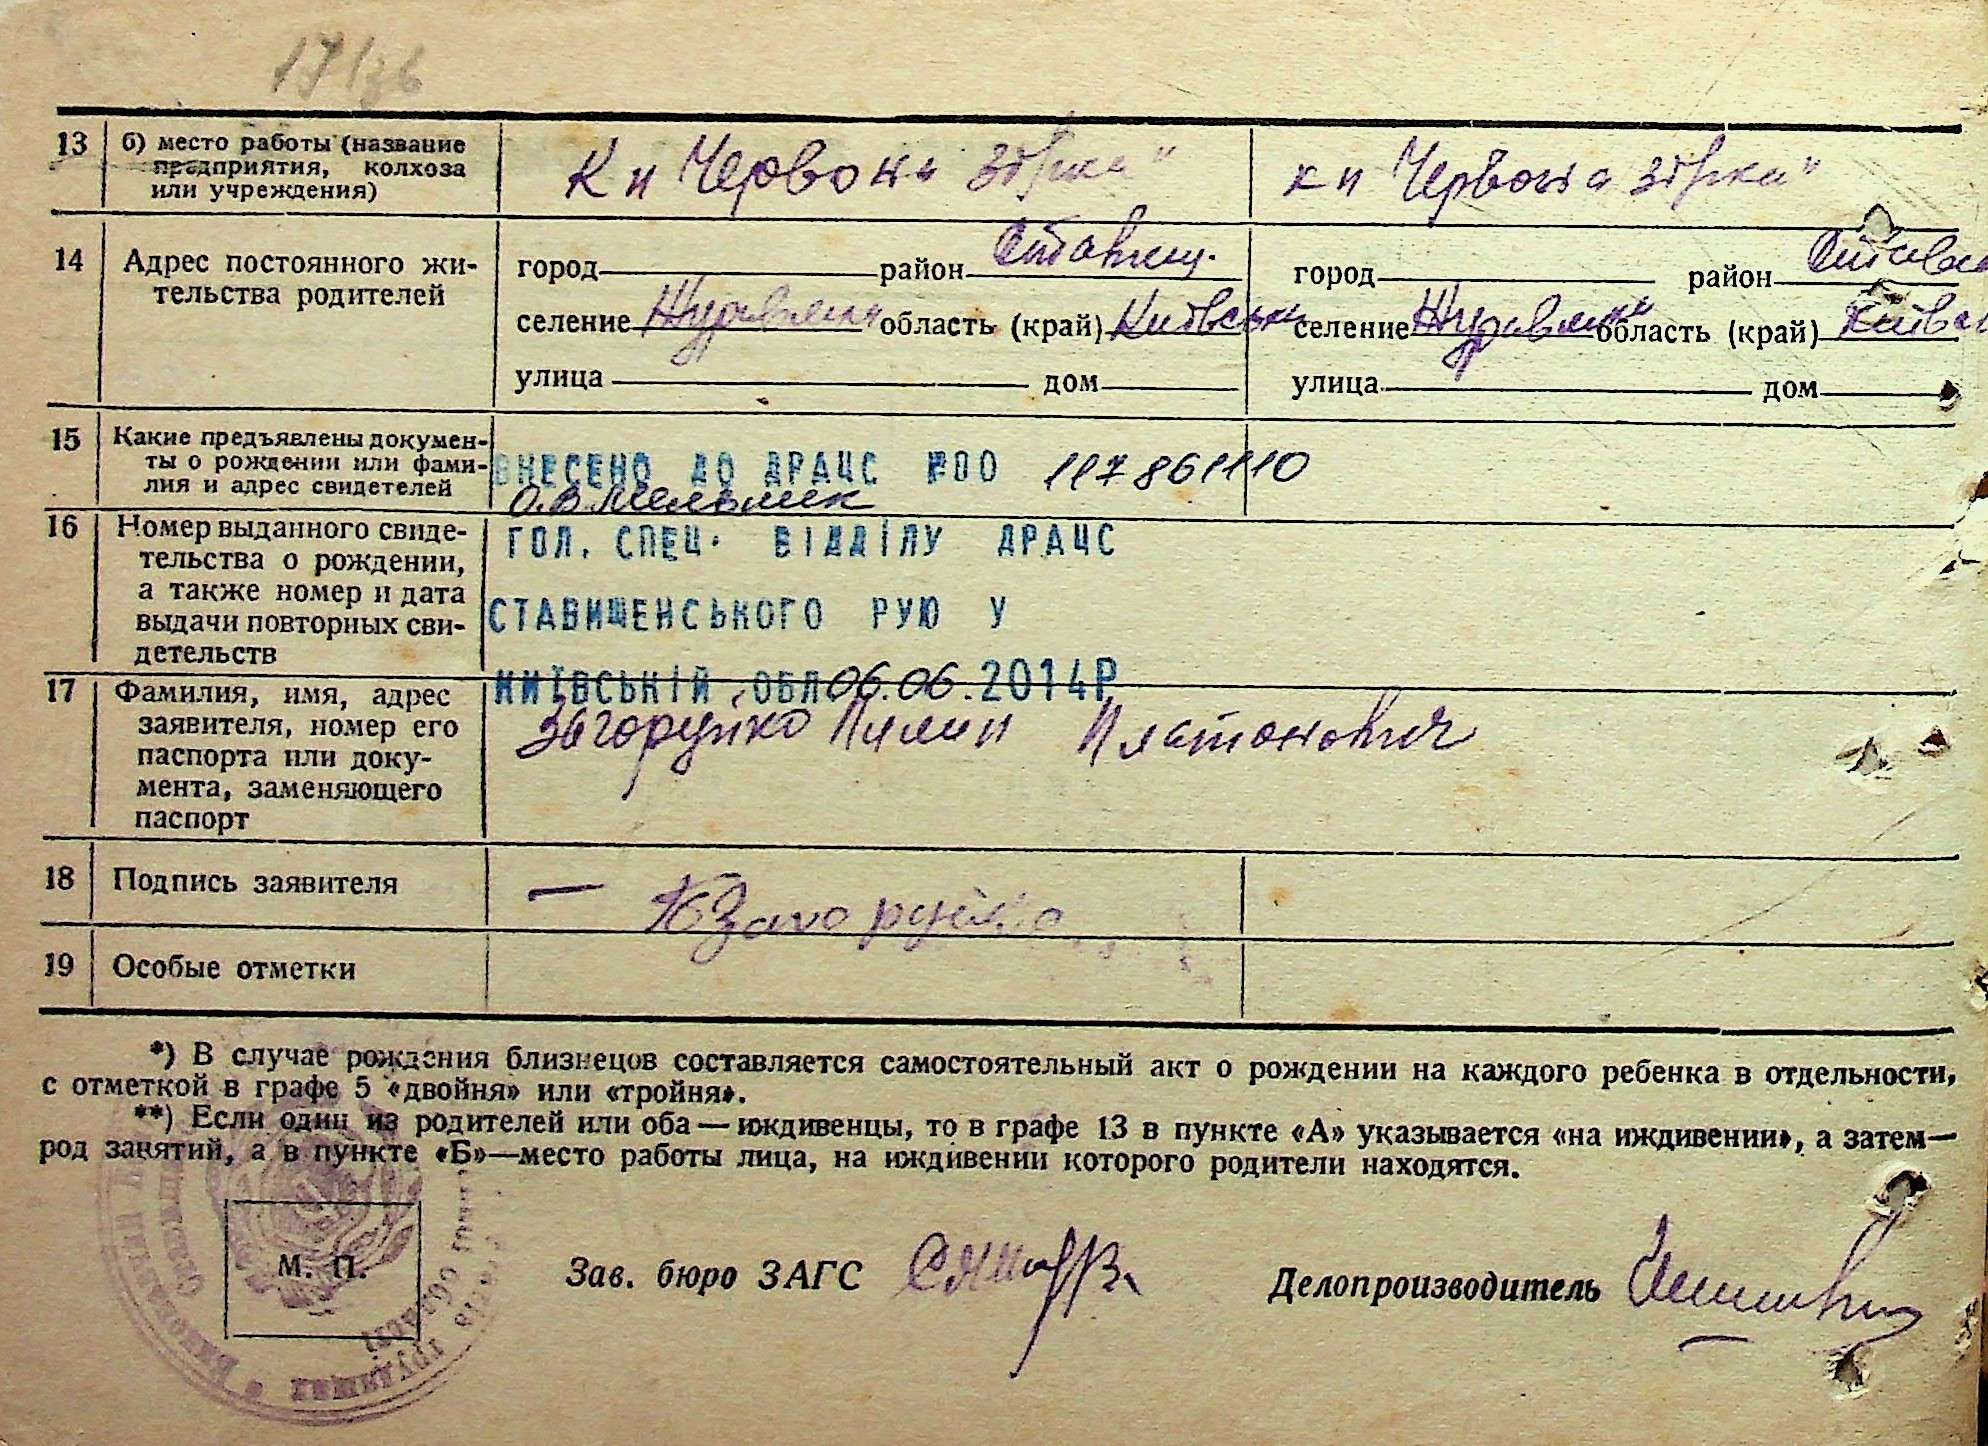 13 б) место работы (название предприятия, колхоза или учреждения) К п Червона зірка" к п Червона зірка"
14 Адрес постоянного жительства родителей
город район Ставищ. город район
селение область (край) Київськ селение область (край)
улица дом улица дом
15 Какие предъявлены документы о рождении или фамилия и адрес свидетелей
ВНЕСЕНО ДО ДРАЦС №00 117861110
О.В.Мельник
16 Номер выданного свидетельства о рождении, а также номер и дата выдачи повторных свидетельств
ГОЛ. СПЕЦ. ВІДДІЛУ ДРАЦС
СТАВИЩЕНСЬКОГО РУЮ У
КИЇВСЬКІЙ ОБЛ 06.06.2014Р
17 Фамилия, имя, адрес заявителя, номер его паспорта или документа, заменяющего паспорт
Загоруйко Платонович
18 Подпись заявителя — Загоруйко
19 Особые отметки
*) В случае рождения близнецов составляется самостоятельный акт о рождении на каждого ребенка в отдельности,
с отметкой в графе 5 «двойня» или «тройня».
**) Если один из родителей или оба — иждивенцы, то в графе 13 в пункте «А» указывается «на иждивении», а затем—
род занятий, а в пункте «Б»—место работы лица, на иждивении которого родители находятся.
М. П.
Зав. бюро ЗАГС Делопроизводитель